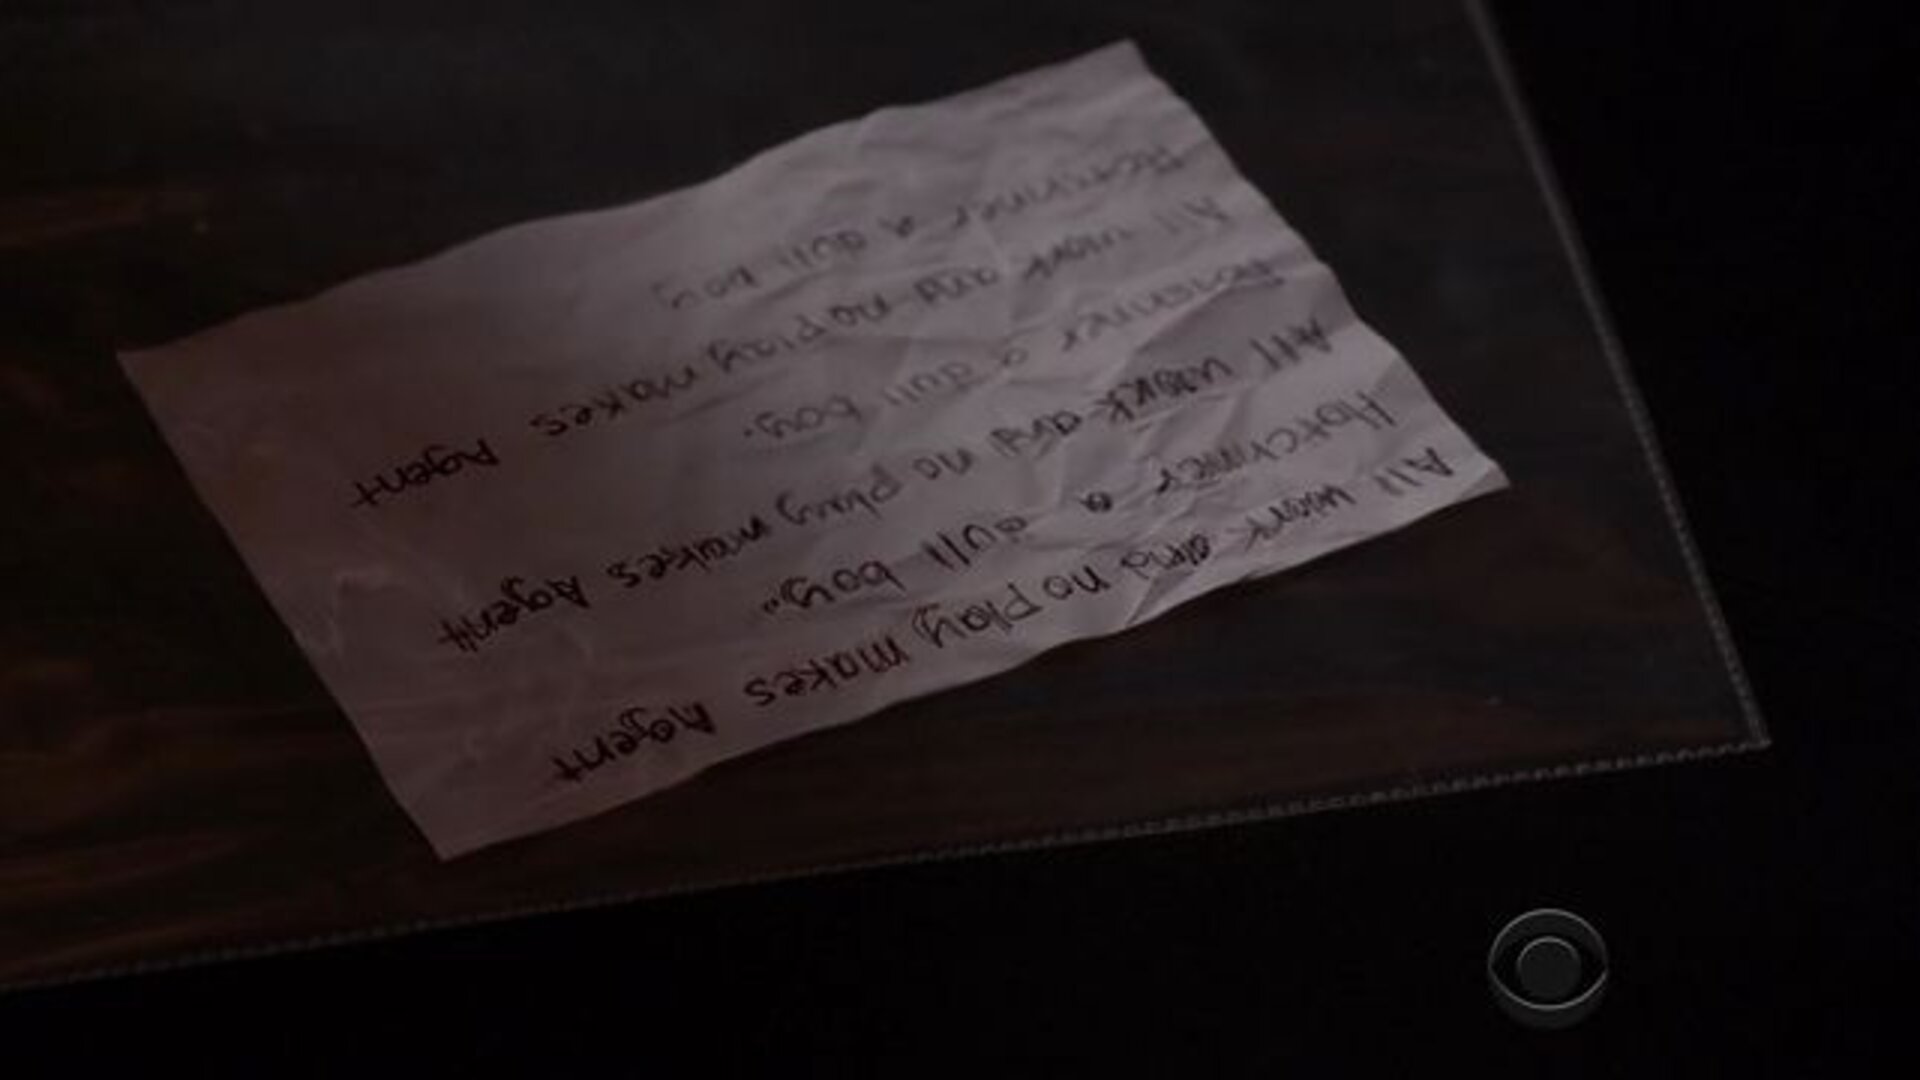 All work and no play makes Agent
Hotchner a dull boy.
All work and no play makes Agent
Hotchner a dull boy.
All work and no play makes Agent
Hotchner A dull boy